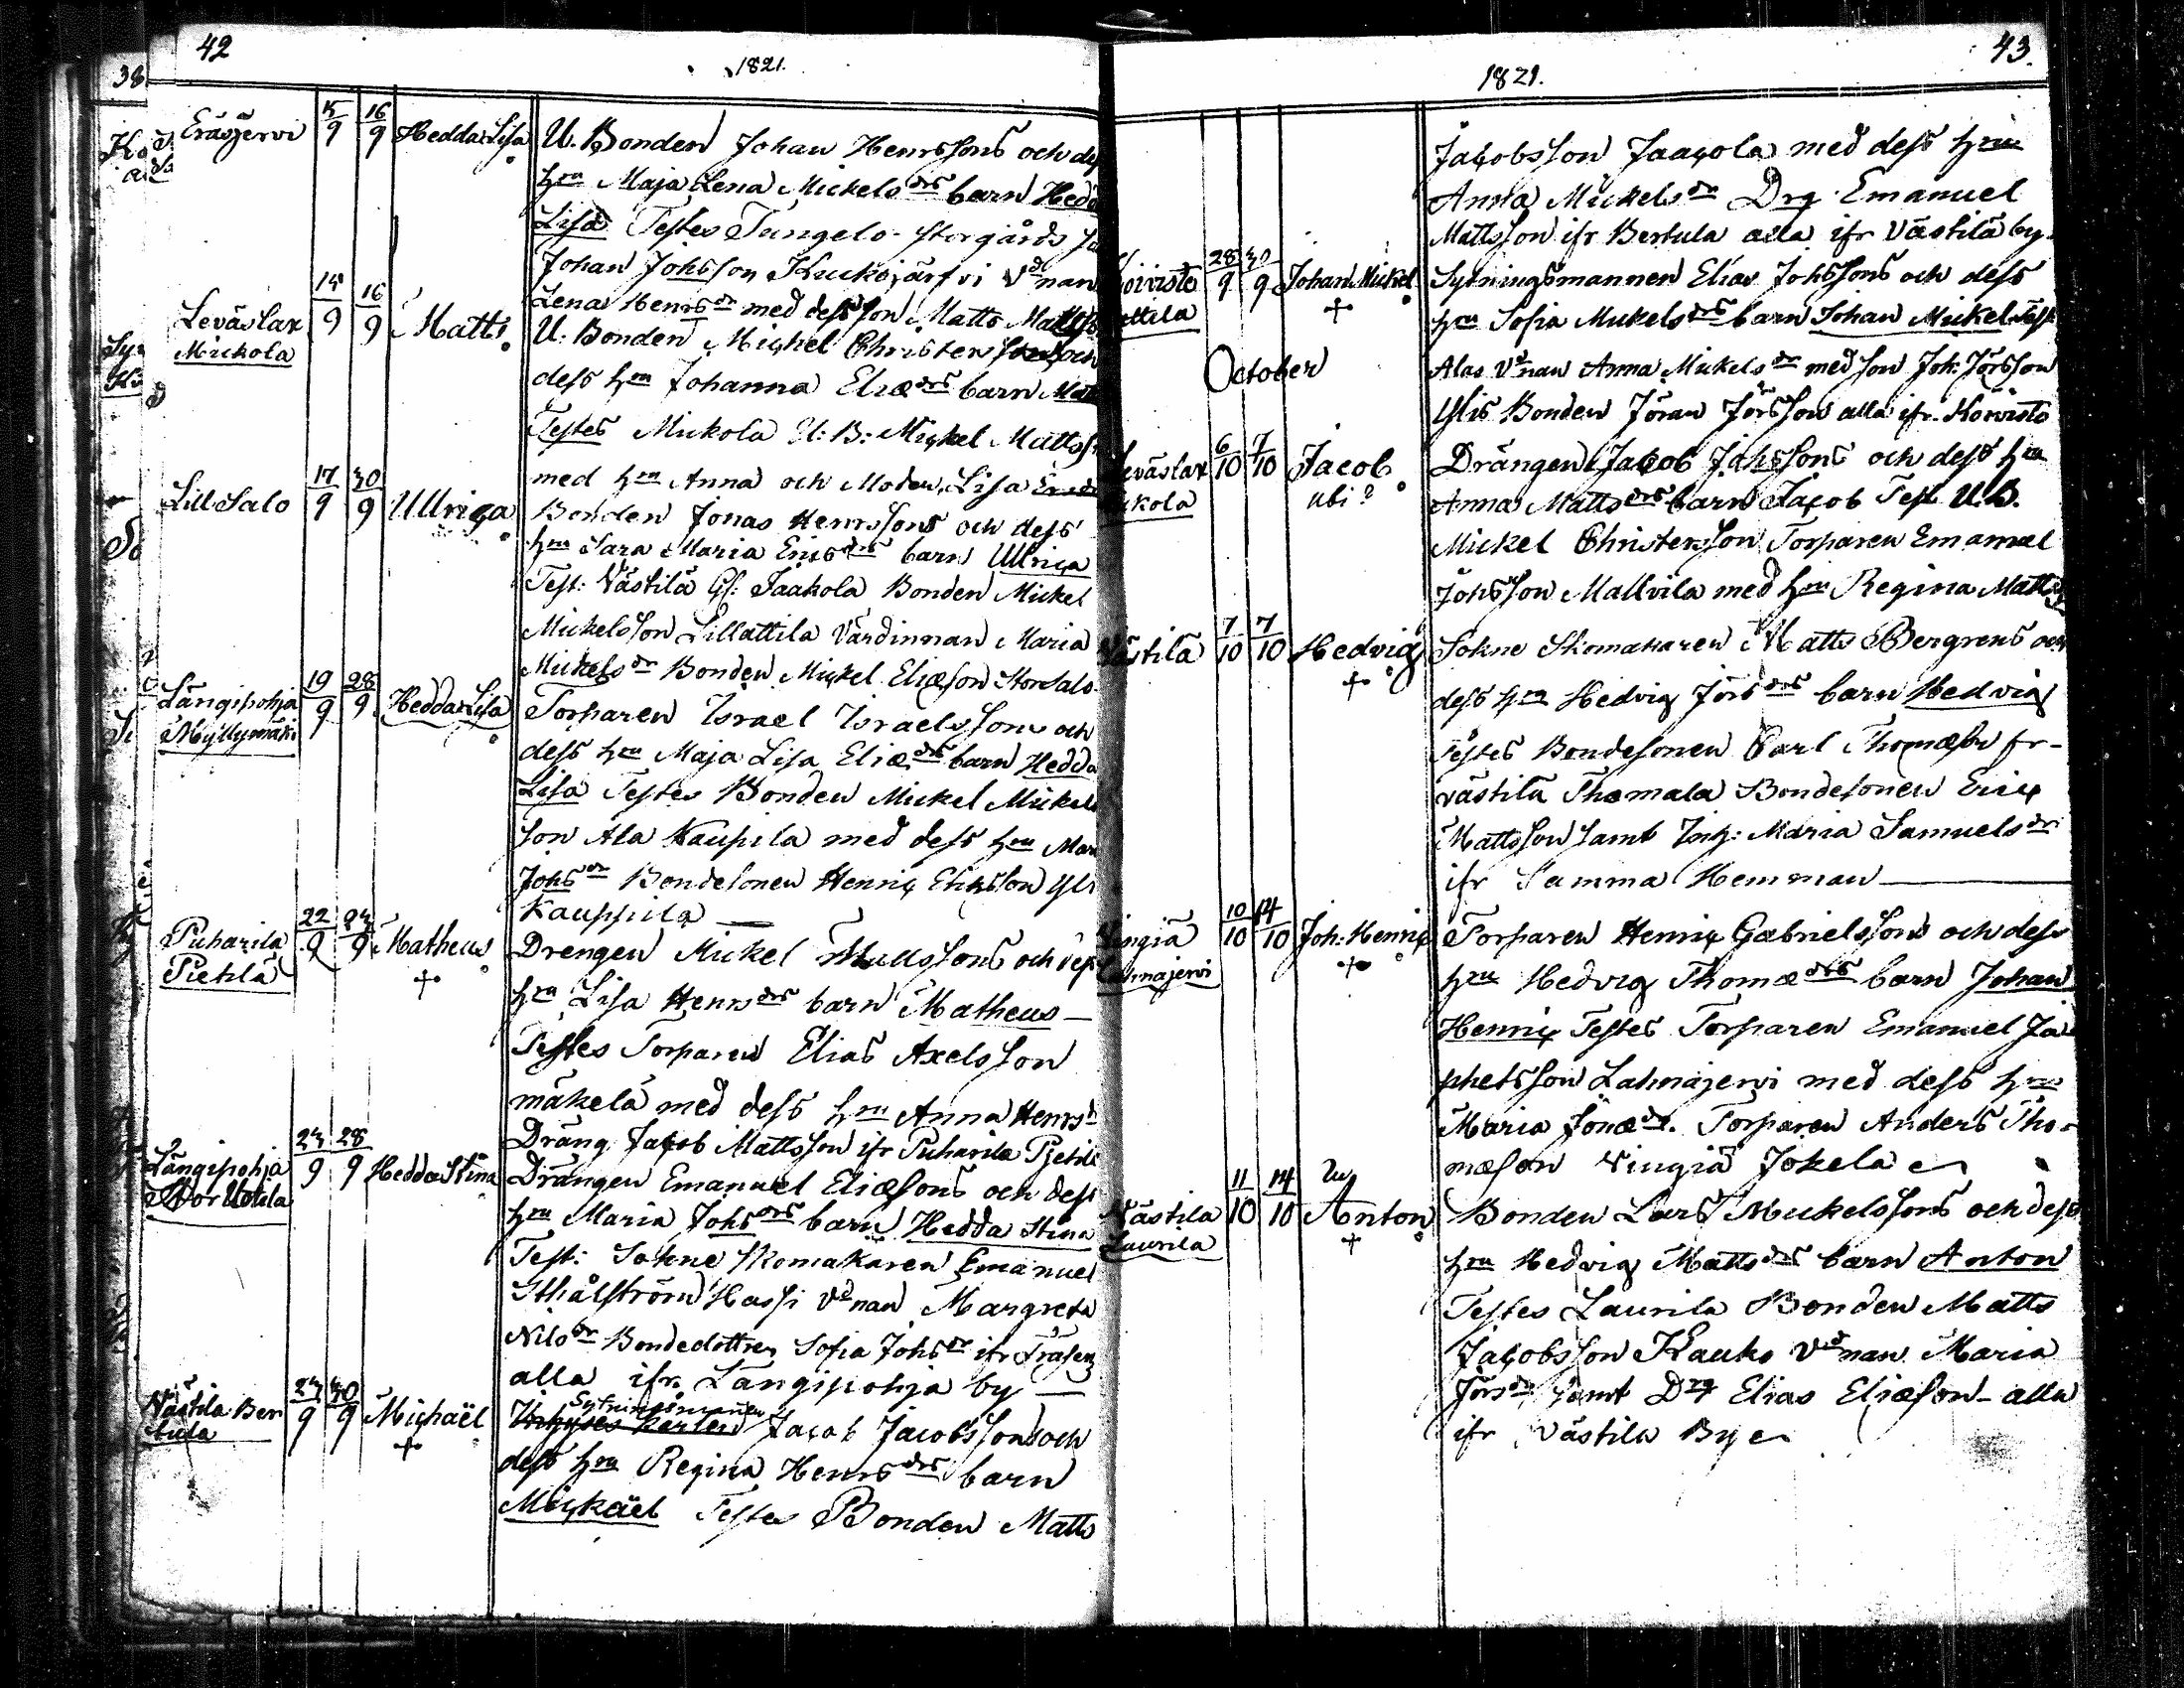 42
1821.
38
Eräsjervi 15/9 16/9 Hedda Lisa U. Bonden Johan Henrssons och
hru Maja Lena Mickels drs barn Hedda
Lisa Testes Tungelo Storgårds
Johan Johsson Kuckojärfvi Vdnan
Lena Henrs dr med dess son Matts
Leväslax Mickola 15/9 16/9 Matts U. Bonden Michel Christerssons och
dess hru Johanna Eliæ drs barn
Testes Mickola U: B: Mickel Matts
med hru Anna och Moder Lisa
Lill Salo 17/9 30/9 Ullrica Bonden Jonas Henrssons och dess
hru Sara Maria Erics drs barn Ullrica
Test: Västilä Gl: Jaakola Bonden Mickel
Mickelsson Lillattila Värdinnan Maria
Mickels dr Bonden Mickel Eliæson Storsalo
Längipohja Myllymäki 19/9 28/9 Hedda Lisa Torparen Israel Israelssons och
dess hru Maja Lisa Eliæ drs barn Hedda
Lisa Testes Bonden Mickel Mickels
son Ala Kaupila med dess hru
Johs dr Bondesonen Henric Ericsson Yli
Kauppila
Puharila Piehlä 22/9 23/9 Matheus Drengen Mickel Mattssons och dess
hru Lisa Henrs drs barn Matheus
Testes Torparen Elias Axelsson
mäkelä med dess hru Anna Henrs
Dräng Jacob Mattsson ifr Puharila
Längipohja Stor Uotila 23/9 28/9 Hedda Stina Drängen Emanuel Eliæsons och dess
hru Maria Johs drs barn Hedda Stina
Test: Sokne skomakaren Emanuel
Sthålström Hassi Vdnan Margreta
Nils dr Bondedottren Sofia Johs dr ifr
alla ifr Längipohja by
Västila Bertula 23/9 30/9 Michaël Sytningsmannen Jacob Jacobssons och
dess hru Regina Henrs drs barn
Mickäel Testes Bonden Matts
43.
1821.
Jacobsson Jaacola med dess hru
Anna Mickels dr Drg Emanuel
Mattsson ifr Bertula alla ifr Västilä by
Koivisto 28/9 30/9 Johan Mickel Sytningsmannen Elias Johssons och dess
hru Sofia Mickels drs barn Johan Mickel Test
Alas Vdnan Anna Mickels dr med son Joh: Jörsson
Ylis Bonden Jöran Jörsson alla ifr Koivisto
October
Leväslax 6/10 7/10 Jacob Drängen Jacob Johssons och dess hru
ubi? Anna Matts drs barn Jacob Test U.B.
Mickel Christersson Torparen Emanuel
Johsson Mallvila med hru Regina Matts
Västilä 7/10 7/10 Hedvig Sokne Skomakaren Matts Bergrens och
dess hru Hedvig Jörs drs barn Hedvig
Testes Bondesonen Carl Thomæson fr
västilä Thomala Bondesonen Eric
Mattsson samt Maria Samuels dr
ifr Samma Hemman
Vingiä Lahnajervi 10/10 14/10 Joh: Henric Torparen Henric Gabrielssons och dess
hru Hedvig Thomæ drs barn Johan
Henric Testes Torparen Emanuel Ja
phetsson Lahnajervi med dess hru
Maria Jonæ dr. Torparen Anders Tho
mæson Vingiä Jokela
Västila Laurila 11/10 14/10 Anton Bonden Lars Mickelssons och dess
hru Hedvig Matts drs barn Anton
Testes Laurila Bonden Matts
Jacobsson Kauko Vdnan Maria
Jörs dr samt Drg Elias Eliæson alla
ifr Västila By